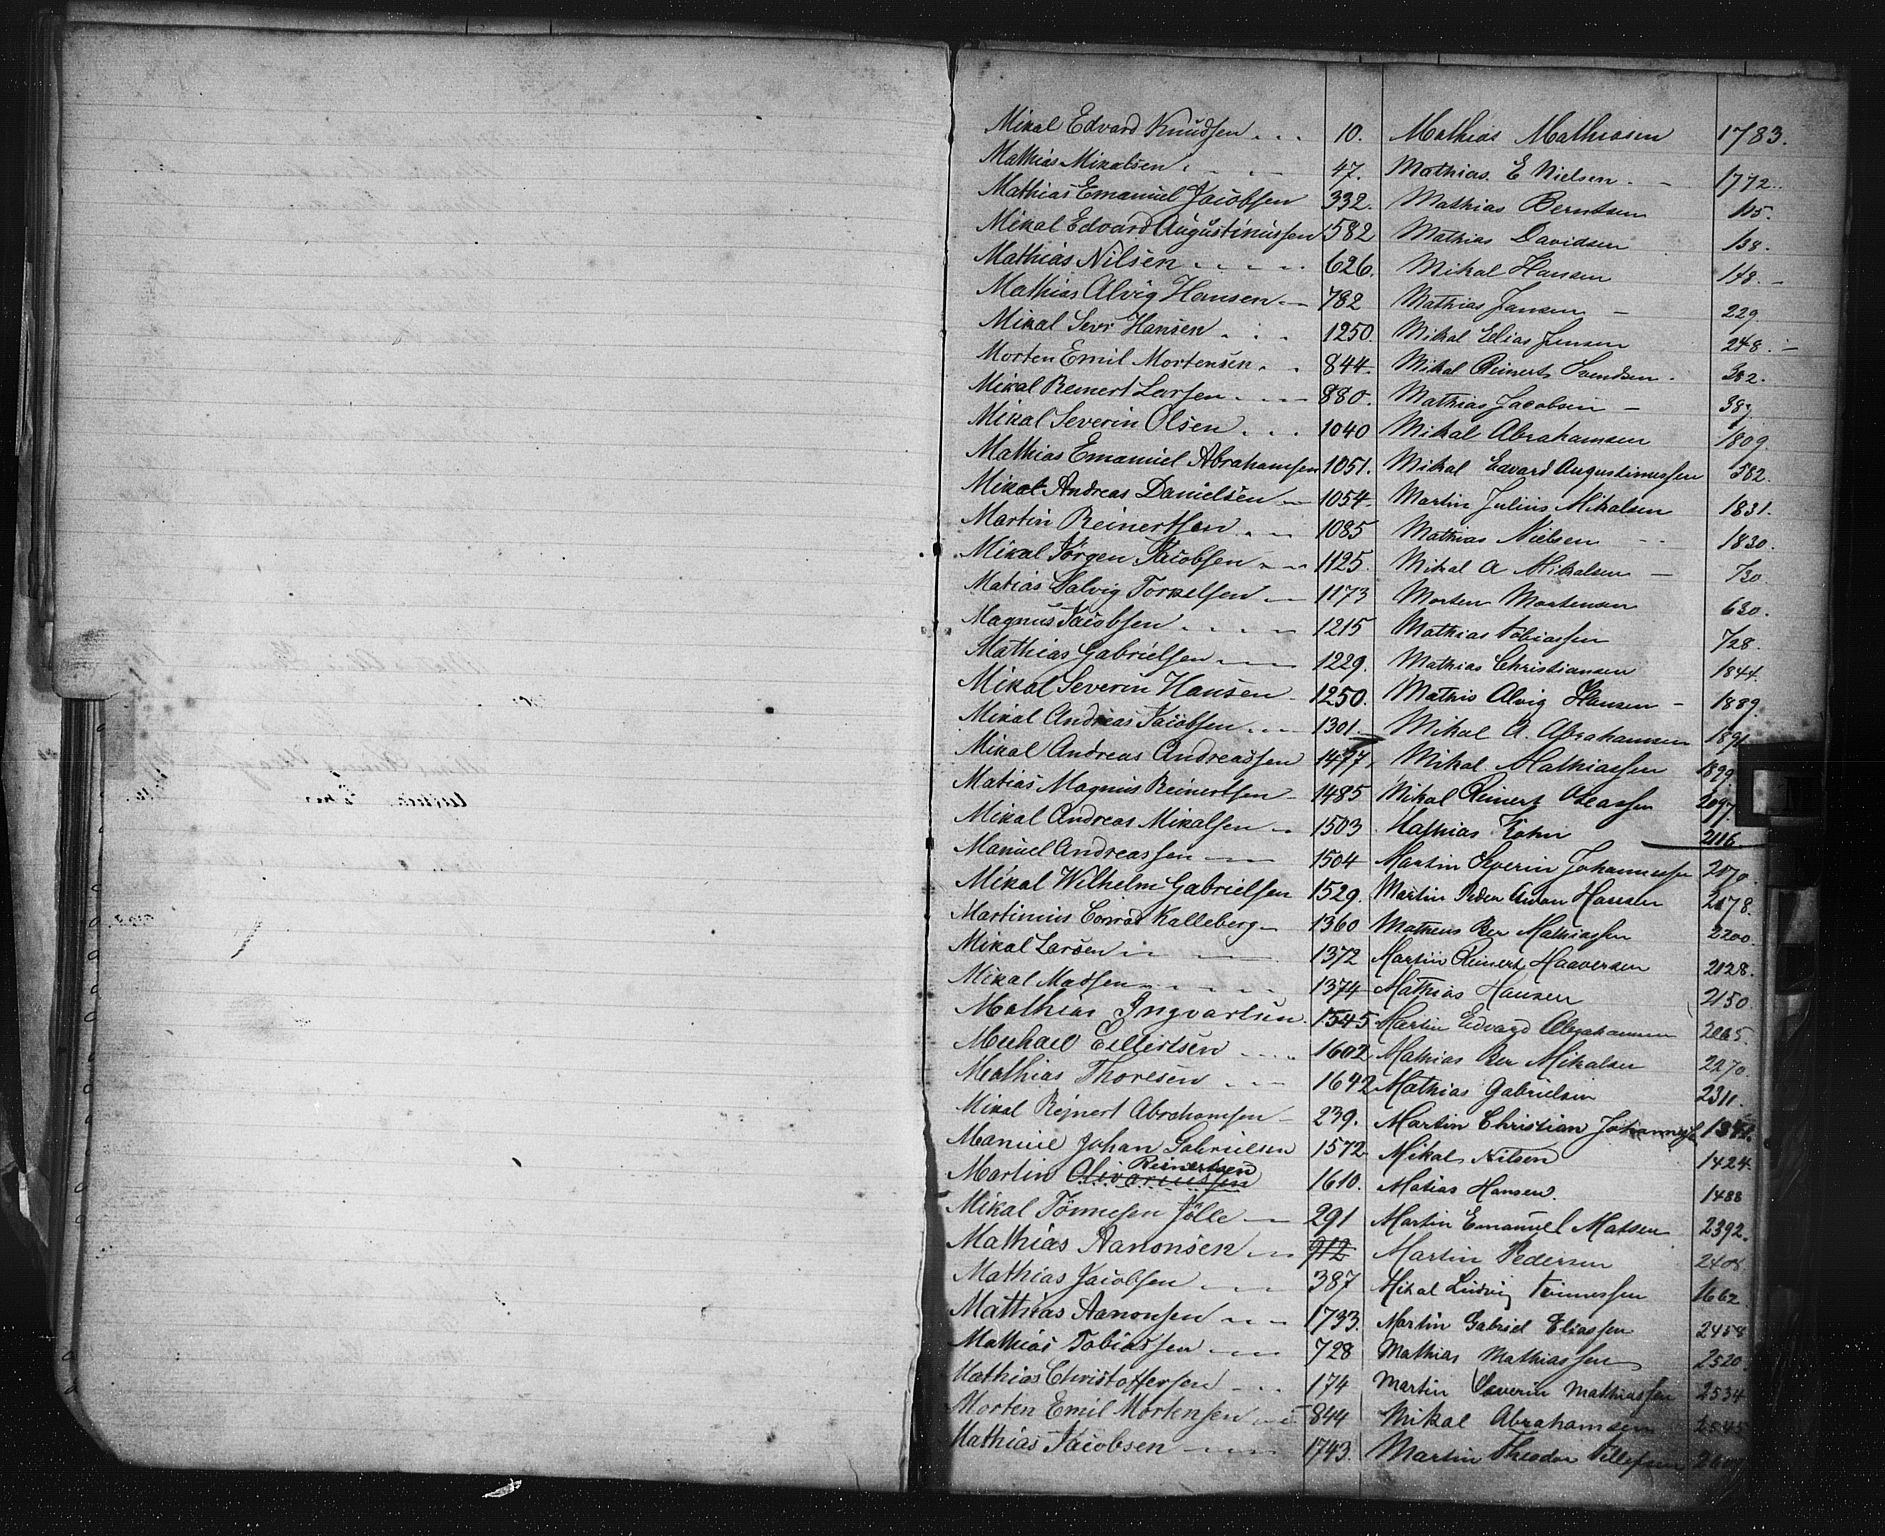 Mikal Edvard Knudsen 10.
Mathias Mikalsen 47.
Mathias Emanuel Jacobsen 332.
Mikal Edvard Augustinussen 582
Mathias Nilsen 626.
Mathias Alvig Hansen 782
Mikal Sevr Hansen 1250.
Morten Emil Mortensen 844.
Mikal Reinert Larsen 880.
Mikal Severin Olsen 1040
Mathias Emanuel Abrahamsen 1051.
Mikal Andreas Danielsen 1054.
Martin Reinertsen 1085
Mikal Jörgen Jacobsen 1125.
Matias Salvig Torkelsen 1173
Magnus Jacobsen 1215
Mathias Gabrielsen 1229.
Mikal Severin Hansen 1250.
Mikal Andreas Jacobsen 1301
Mikal Andreas Andreassen 1477
Matias Magnus Reinertsen 1485
Mikal Andreas Mikalsen 1503
Manuel Andreassen 1504
Mikal Wilhelm Gabrielsen 1529.
Martinius Conrad Kalleberg 1360
Mikal Larsen 1372
Mikal Madsen 1374
Mathias Ingvartsen 1545
Michael Eilertsen 1602
Mathias Thoresen 1642
Mikal Rejnert Abrahamsen 239.
Manuel Johan Gabrielsen 1572
Reinertsen
Martin Olivariussen 1610.
Mikal Tönnesen Jölle 291
Mathias Aanonsen 912
Mathias Jacobsen 387
Matthias Aanonsen 1733.
Mathias Tobiassen 728
Mathias Christoffersen 174
Morten Emil Mortensen 844
Mathias Jacobsen 1743.
Mathias Mathiasen 1783.
Mathias E Nielsen 1772.
Mathias Berntsen 105.
Mathias Davidsen 138.
Mikal Hansen 148.
Mathias Jansen 229
Mikal Elias Jensen 248.
Mikal Reinert Svendsen 382.
Mathias Jacobsen 387
Mikal Abrahamsen 1809.
Mikal Edvard Augustinussen 582.
Martin Julius Mikalsen 1831.
Mathias Nielsen 1830.
Mikal A Mikalsen 730
Morten Mortensen 630.
Mathias Tobiassen 728.
Mathias Christiansen 1844.
Mathis Alvig Hansen 1889.
Mikal A. Abrahamsen 1891
Mikal Mathiassen 1899
Mikal Reinert Oleassen 2097
Mathias Kohn 2116.
Martin Severin Johannessen 2170.
Martin Peder Anton Hansen 2178.
Matheus Ber Mathiassen 2200.
Martin Reinert Haaversen 2128.
Mathias Hansen 2150
Martin Edvard Abrahamsen 2265.
Mathias Ber Mikalsen 2270.
Mathias Gabrielsen 2311.
Martin Christian Johannesen
Mikal Nilsen 1424
Matias Hansen 1488
Martin Emanuel Matsen 2392.
Martin Pedersen 2408
Mikal Ludvig Tönnessen 1662
Martin Gabriel Eliassen 2458
Mathias Mathiassen 2520
Martin Severin Mathiassen 2534
Mikal Abrahamsen 2545
Martin Theodor Tellefsen